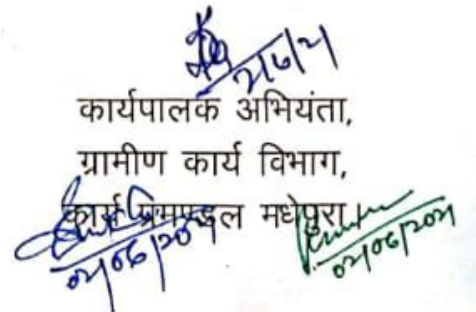 2/6/21
कार्यपालक अभियंता,
ग्रामीण कार्य विभाग,
कार्य प्रमण्डल मधेपुरा।
02/06/2021 02/06/2021